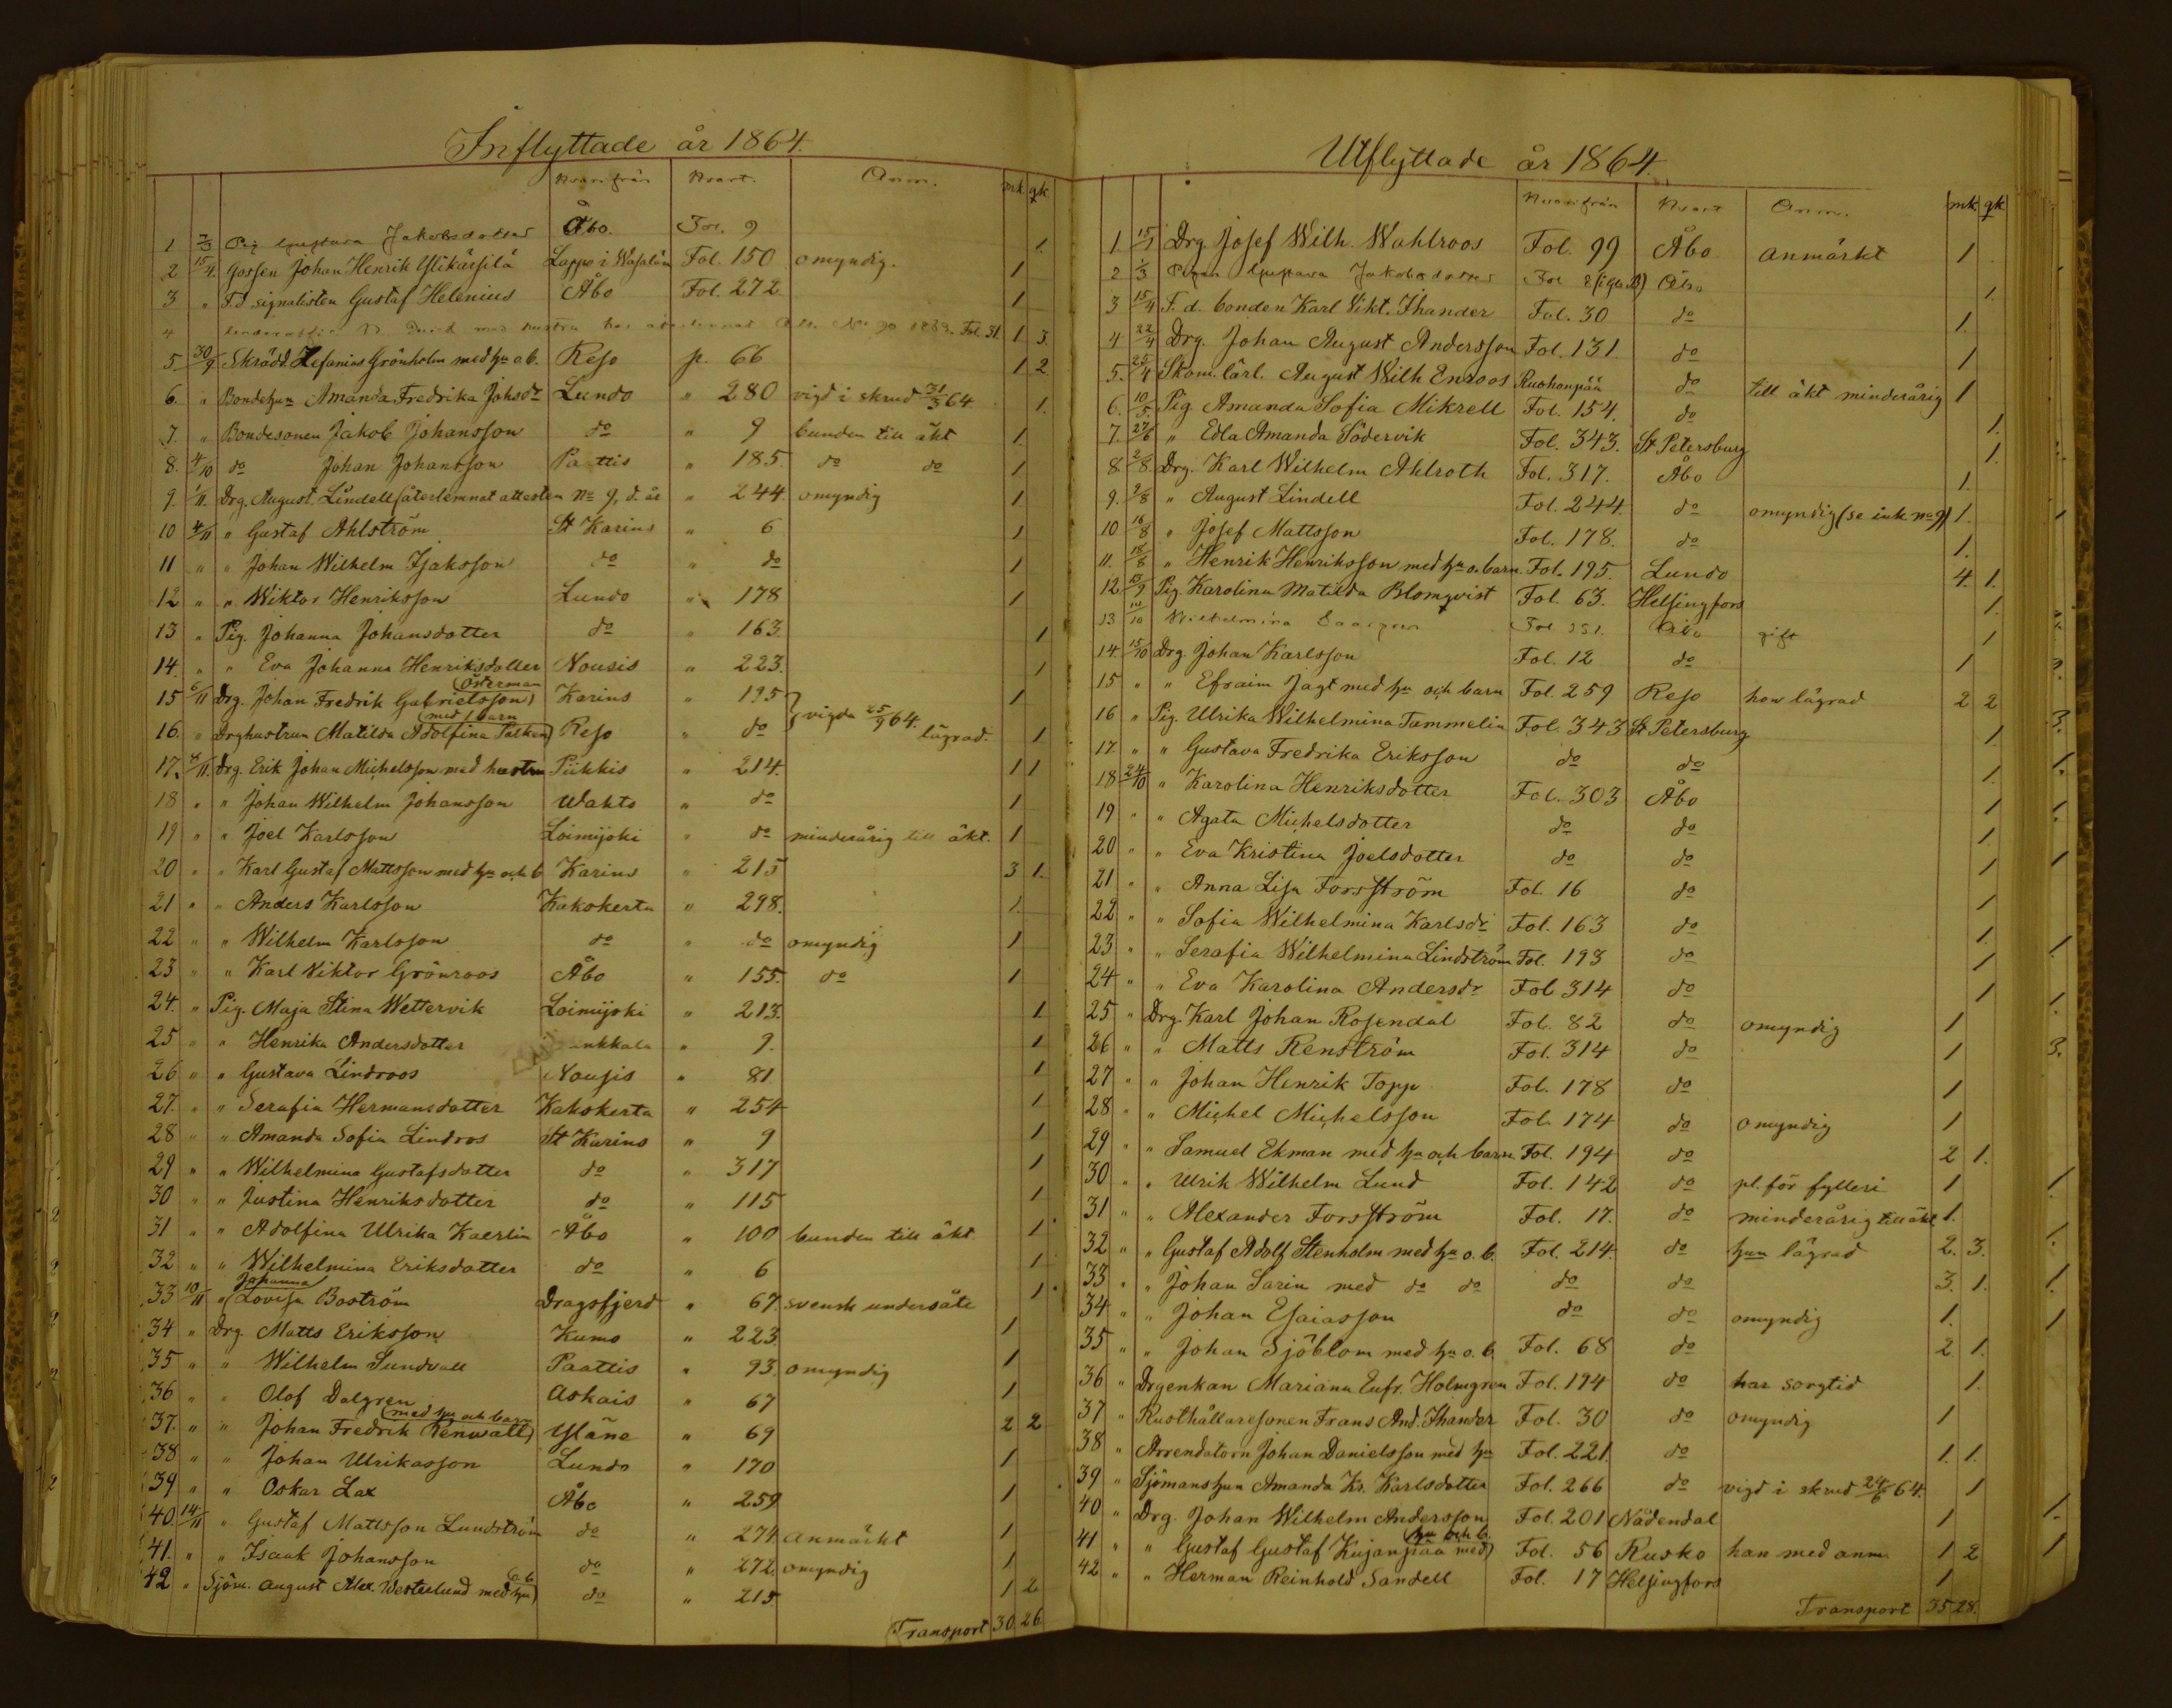 Inflyttade år 1864.
Hvarifrån Hvart. Anm. mk. qk.
1 Pig Gustava Jakobsdotter Åbo. Fol. 9 1.
2 15/4. Gossen Johan Henrik Ylikärsilä Lappo i Wasa län Fol. 150 omyndig. 1
3 " F.d signalisten Gustaf Helenius Åbo Fol. 272 1
4 med hustru har 1863. Fol. 31. 1 3.
5. 30/9 Skrädd. Zefanias Grönholm med hu o b. Reso p. 66 1 2
6. " Bondehun Amanda Fredrika Johsdr Lundo " 280 vigd i skrud 31/3 64. 1.
7. " Bondesonen Jakob Johansson do " 9 bunden till äkt 1
8. 4/10 do Johan Johansson Paattis " 185. do do 1
9. 1/11. Drg. August Lindell (återlemnat attesten No 9, d. år " 244. omyndig 1
10 4/11 " Gustaf Ahlström St Karins " 6 1
11 " " Johan Wilhelm Isaksson do " do 1
12 " " Wiktor Henriksson Lundo " 178 1
13 " Pig. Johanna Johansdotter do " 163. 1
14. " " Eva Johanna Henriksdotter Nousis " 223. 1
15 6/11 Drg. Johan Fredrik Gabrielsson (Österman) Karins " 195 } vigda 25/9 64. 1
16. " Drghustrun Matilda Adolfina Palken (med 1 barn) Reso " do lägrad. 1
17. 4/11. Drg. Erik Johan Michelsson med hustru Piikkis " 214. 1 1
18 " " Johan Wilhelm Johansson Wahto " do 1
19 " " Joel Karlsson Loimijoki " do minderårig till äkt. 1
20 " " Karl Gustaf Mattsson med hu och b Karins " 215 3 1.
21 " " Anders Karlsson Kakskerta " 298. 1.
22 " " Wilhelm Karlsson do " do omyndig 1
23 " " Karl Viktor Grönroos Åbo " 155. do 1
24. " Pig. Maja Stina Wettervik Loimijoki " 213. 1
25 " " Henrika Andersdotter " 9. 1
26 " " Gustava Lindroos Nousis " 81. 1
27. " " Serafia Hermansdotter Kakskerta " 254 1
28 " " Amanda Sofia Lindros St Karins " 9 1
29 " " Wilhelmina Gustafsdotter do " 317 1
30 " " Justina Henriksdotter do " 115 1
31 " " Adolfina Ulrika Kaerlin Åbo " 100 bunden till äkt. 1
32 " " Wilhelmina Eriksdotter do " 6 1
33 10/11 " (Johanna) Lovisa Boström Dragsfjerd " 67. svensk undersåte 1.
34 " Drg. Matts Eriksson Kumo " 223. 1
35 " " Wilhelm Sundvall Paattis " 93. omyndig 1
36 " " Olof Dalgren Askais " 67 1
37. " " Johan Fredrik Renwall (med hu och barn) Yläne " 69 2 2
38 " " Johan Ulrikasson Lundo " 170 1
39 " " Oskar Lax Åbo " 259 1
40. 14/11 " Gustaf Mattsson Lundström do " 274 anmärkt 1
41. " " Isaak Johansson do " 272. omyndig 1
42 " Sjöm. August Alex. Westerlund med hu o b. do " 215. 1 2
Transport 30. 26.
Utflyttade år 1864.
Hvarifrån Hvart Anm. mk. qk.
1. 15/1 Drg. Josef Wilh. Wahlroos Fol. 99 Åbo anmärkt 1
2 1/3 Pigan Gustava Jakobsdotter Fol Åbo 1.
3 15/4 F. d. bonden Karl Vikt. Ihander Fol. 30 do 1
4 22/4 Drg. Johan August Andersson Fol. 131. do 1
5. 25/4 Skom. lärl. August Wilh Enroos Ruohonpää do till äkt minderårig 1
6. 10/5. Pig Amanda Sofia Mikrell Fol. 154. do 1.
7. 27/6 " Edla Amanda Södervik Fol. 343. St Petersburg 1.
8 2/8. Drg. Karl Wilhelm Ahlroth Fol. 317. Åbo 1.
9. 9/8 " August Lindell Fol. 244. do omyndig (se ink no 9) 1.
10 16/8 " Josef Mattsson Fol. 178. do 1.
11. 18/8 " Henrik Henriksson med hu o. barn. Fol. 195. Lundo 4. 1.
12 13/9 Pig. Karolina Matilda Blomqvist Fol. 63. Helsingfors 1.
13 /10 Wilhelmina Fol 351. Åbo gift 1
14. 15/10 Drg. Johan Karlsson Fol. 12 do 1
15 " " Efraim Jagt med hu och barn Fol. 259 Reso hon lägrad 2 2
16 " Pig. Ulrika Wilhelmina Tammelin Fol. 343 St Petersburg 1.
17. " " Gustava Fredrika Eriksson do do 1.
18 24/10 " Karolina Henriksdotter Fol. 303 Åbo 1
19 " " Agata Michelsdotter do do 1.
20 " " Eva Kristina Joelsdotter do do 1
21 " " Anna Lisa Forsström Fol. 16 do 1
22 " " Sofia Wilhelmina Karlsdr Fol. 163 do 1.
23 " " Serafia Wilhelmina Lindström Fol. 193 do 1
24 " " Eva Karolina Andersdr Fol 314 do 1
25 " Drg. Karl Johan Rosendal Fol. 82 do omyndig 1
26 " " Matts Renström Fol. 314 do 1
27 " " Johan Henrik Topp Fol. 178 do 1
28 " " Michel Michelsson Fol. 174 do omyndig 1
29 " " Samuel Ekman med hu och barn. Fol. 194 do 2 1.
30 " " Ulrik Wilhelm Lund Fol. 142 do pl. för fylleri 1
31 " " Alexander Forsström Fol. 17. do minderårig till äkt 1.
32 " " Gustaf Adolf Stenholm med hu o. b. Fol. 214. do hun lägrad 2. 3.
33 " " Johan Sarin med do do do do 3. 1.
34 " " Johan Esaiasson do do omyndig 1.
35 " " Johan Sjöblom med hu o. b. Fol. 68 do 2. 1.
36 " Drgenkan Mariana Eufr. Holmgren Fol. 194 do har sorgtid 1.
37 " Rusthållaresonen Frans And. Ihander Fol. 30 do omyndig 1
38 " Arrendatorn Johan Danielsson med hu Fol. 221. do 1. 1.
39 " Sjömanshun Amanda Kr. Karlsdotter Fol. 266 do vigd i skrud 24/6 64. 1
40 " Drg. Johan Wilhelm Andersson Fol. 201 Nådendal 1
41 " " Gustaf Gustaf Kujanpää med (hu och b.) Fol. 56 Rusko han med anm. 1 2
42 " " Herman Reinhold Sandell Fol. 17 Helsingfors 1
Transport 35 28.